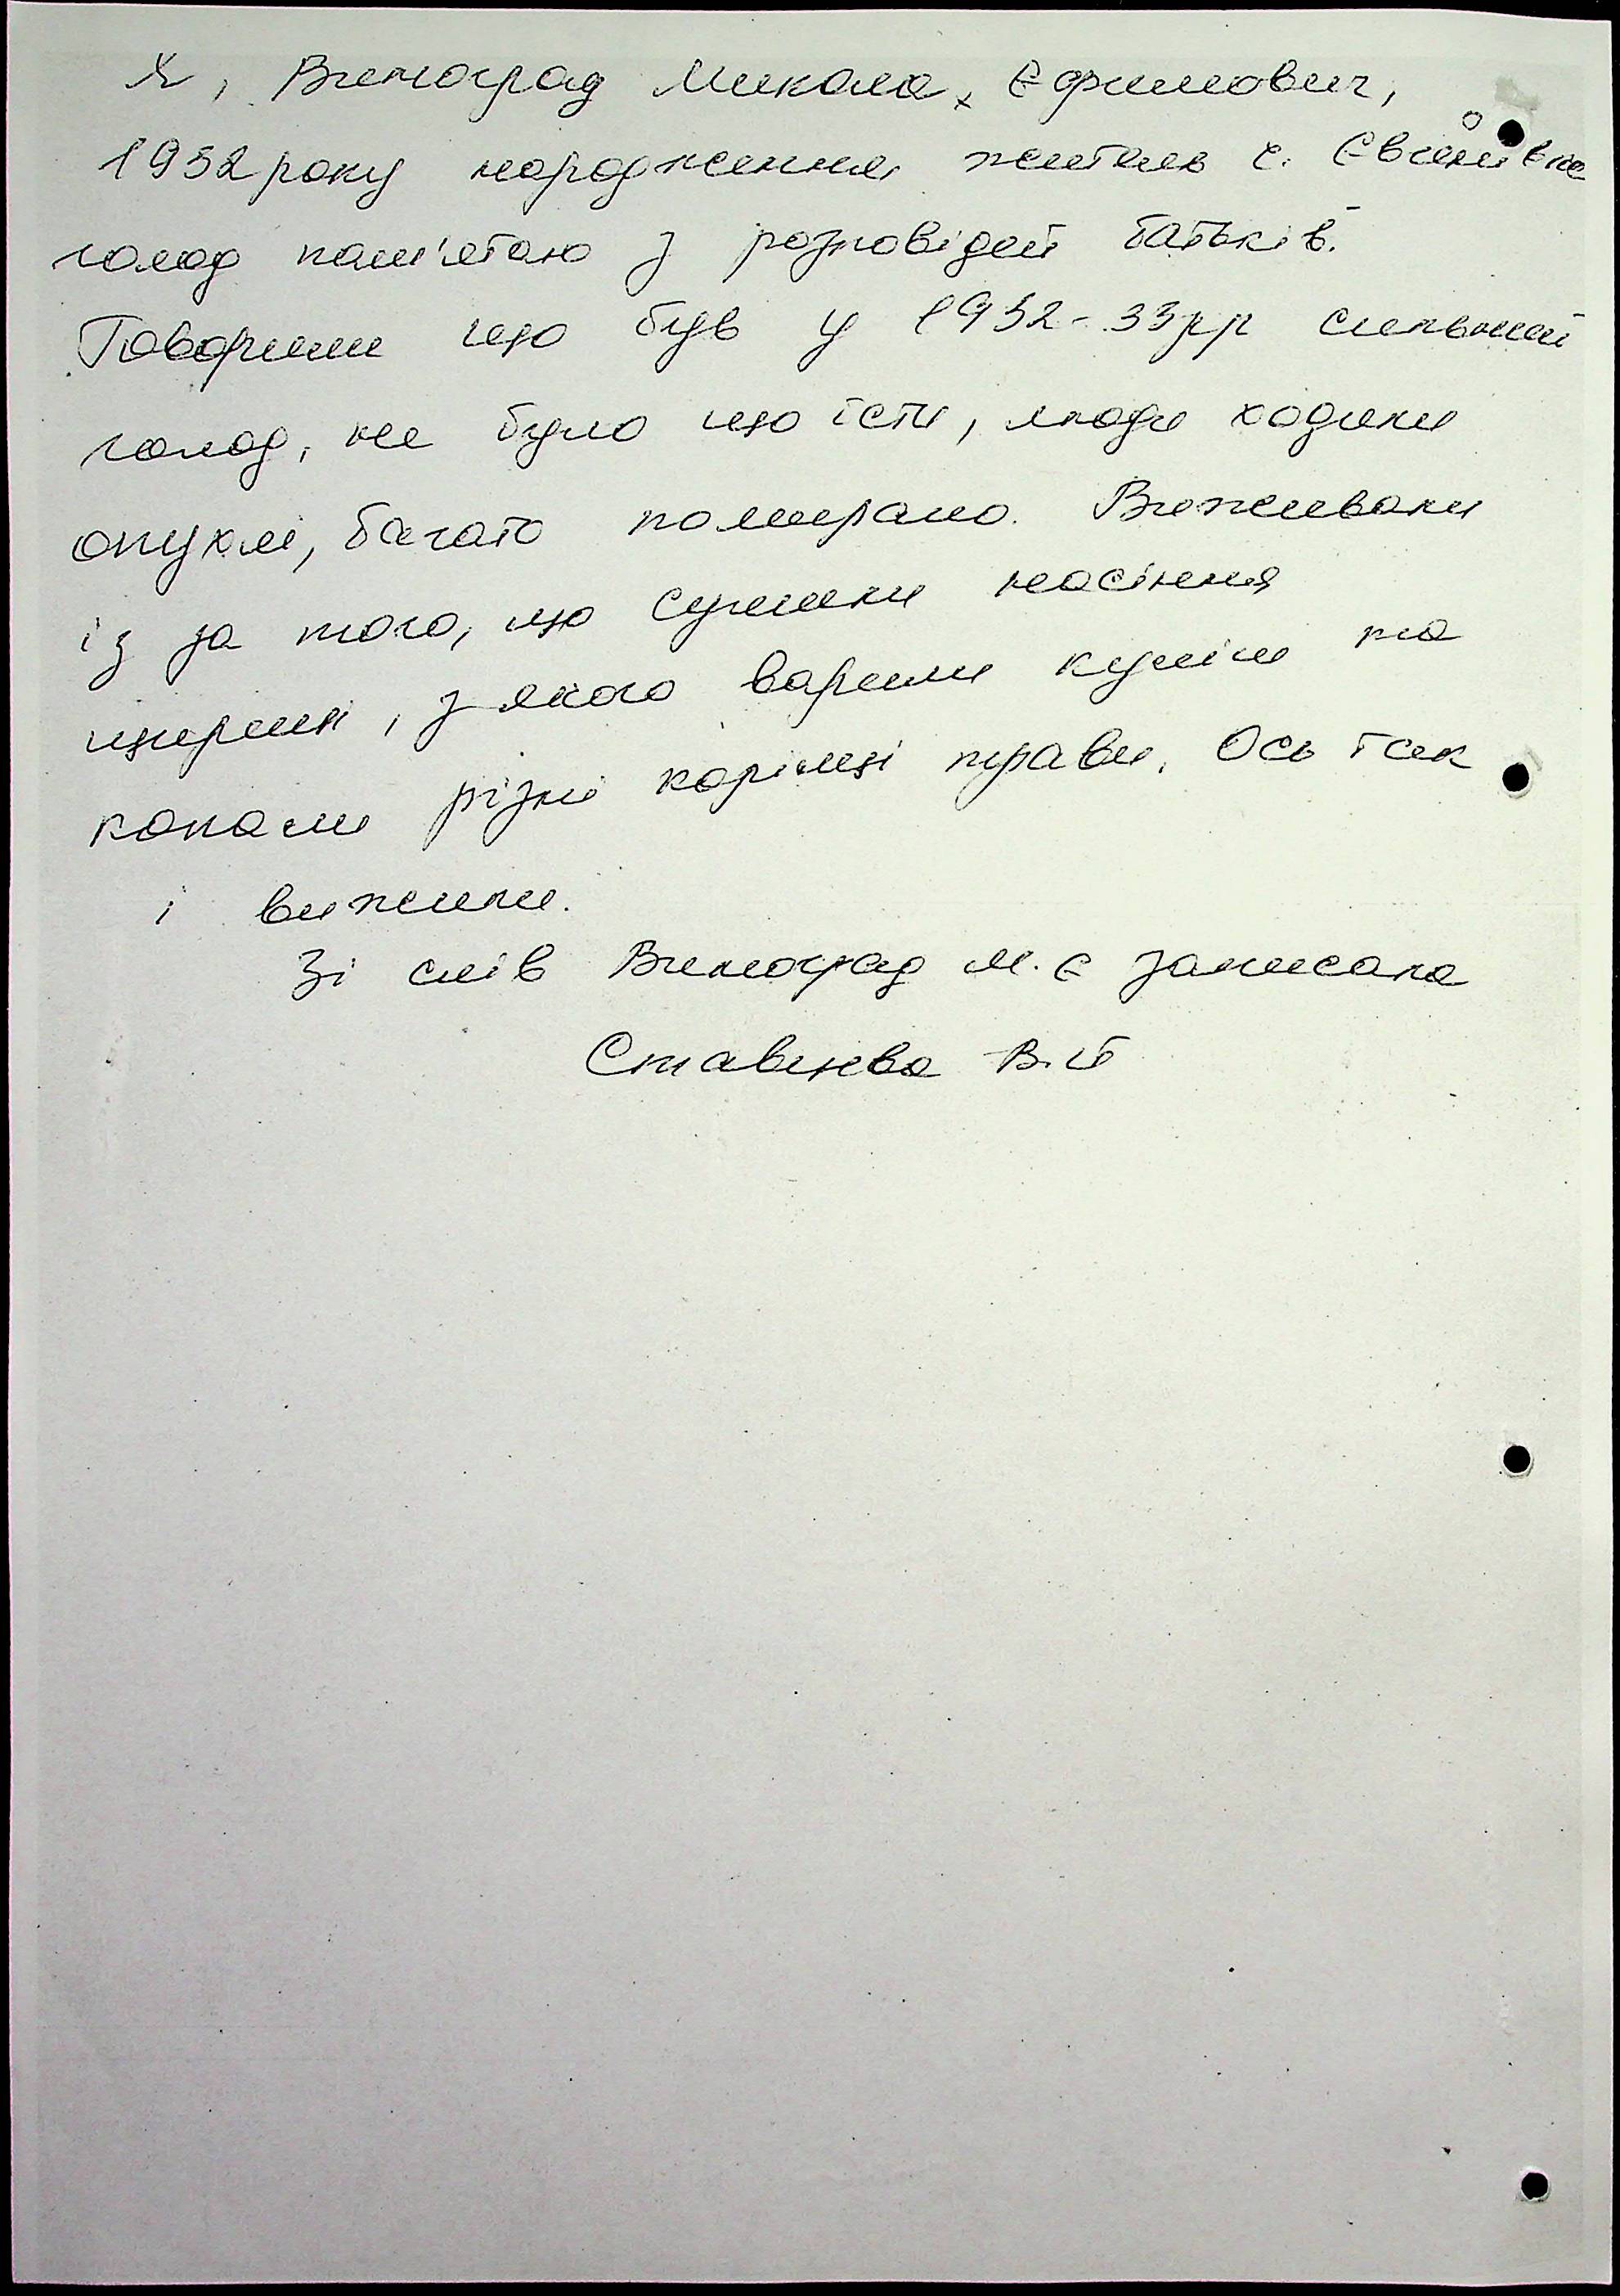 Я, Виноград Микола Єфимович,
1932 року народження житель с.
голод пам'ятаю з розповідей батьків.
Говорили що був у 1932-33рр сильний
голод, не було що їсти, люди ходили
опухлі, багато помирало. Виживали
із за того, що сушили насіння
щириці, з якого варили куліш та
копали різні корінці трави. Ось так
і вижили.
Зі слів Виноград М. Є записала
Ставцева В.